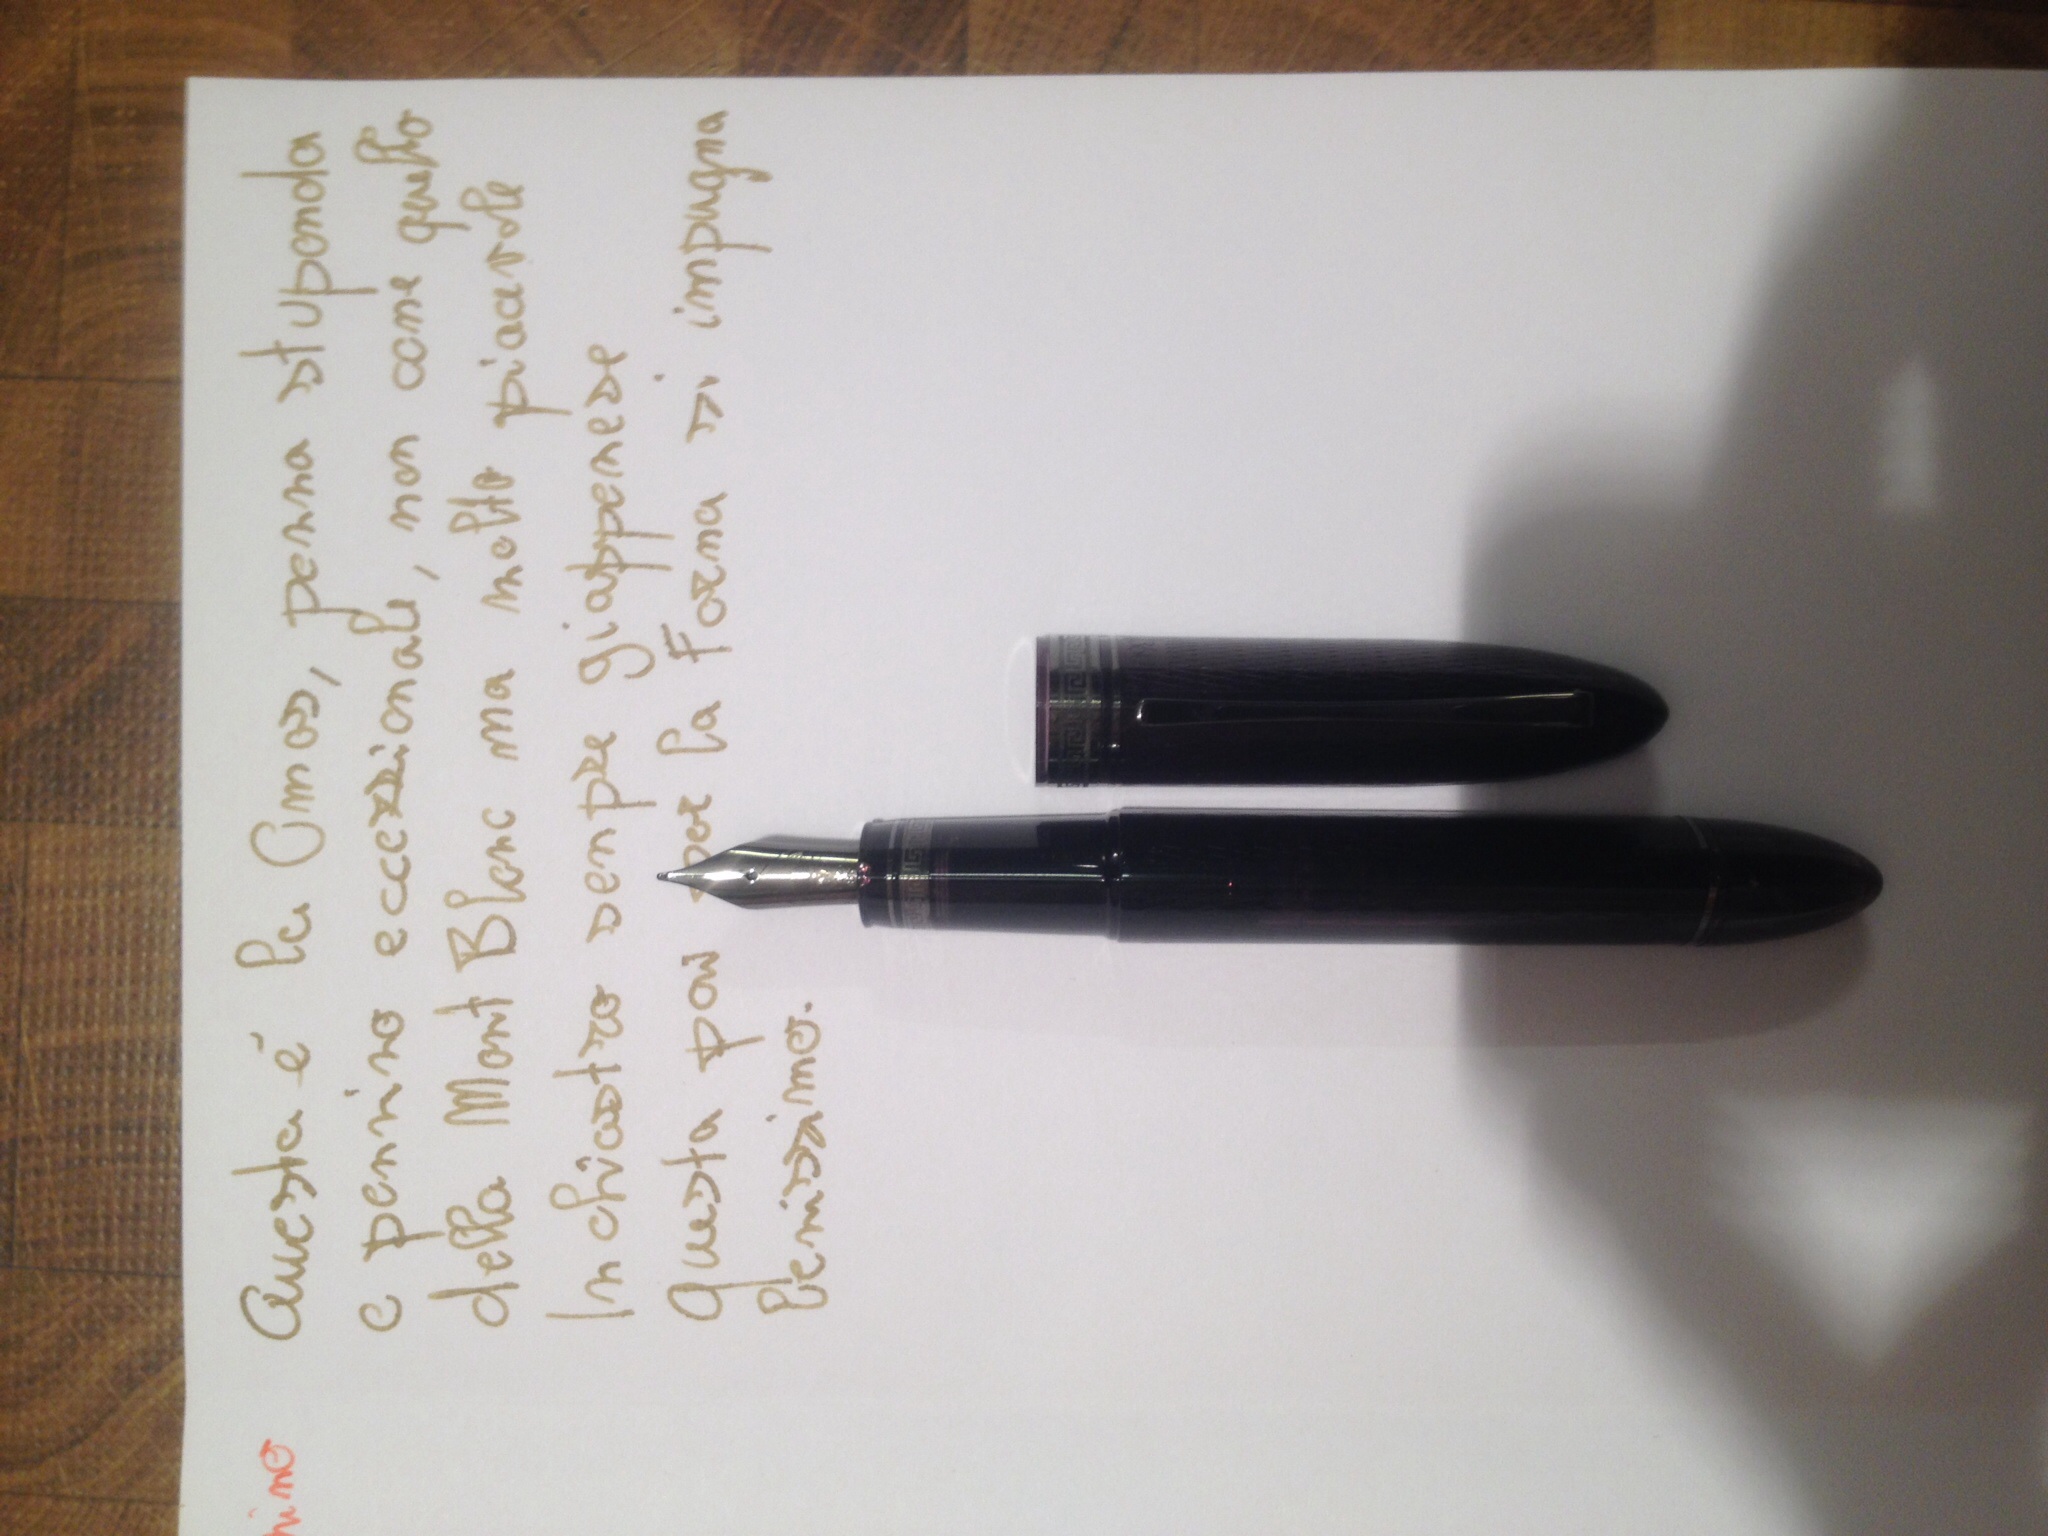 Questa è la Omas, penna stuponda
e pennino eccezzionale, non come quello
della Mont Blanc ma molto piacevole
Inchiostro sempre giapponese
Questa poi per la Forma si impugna
benissimo.